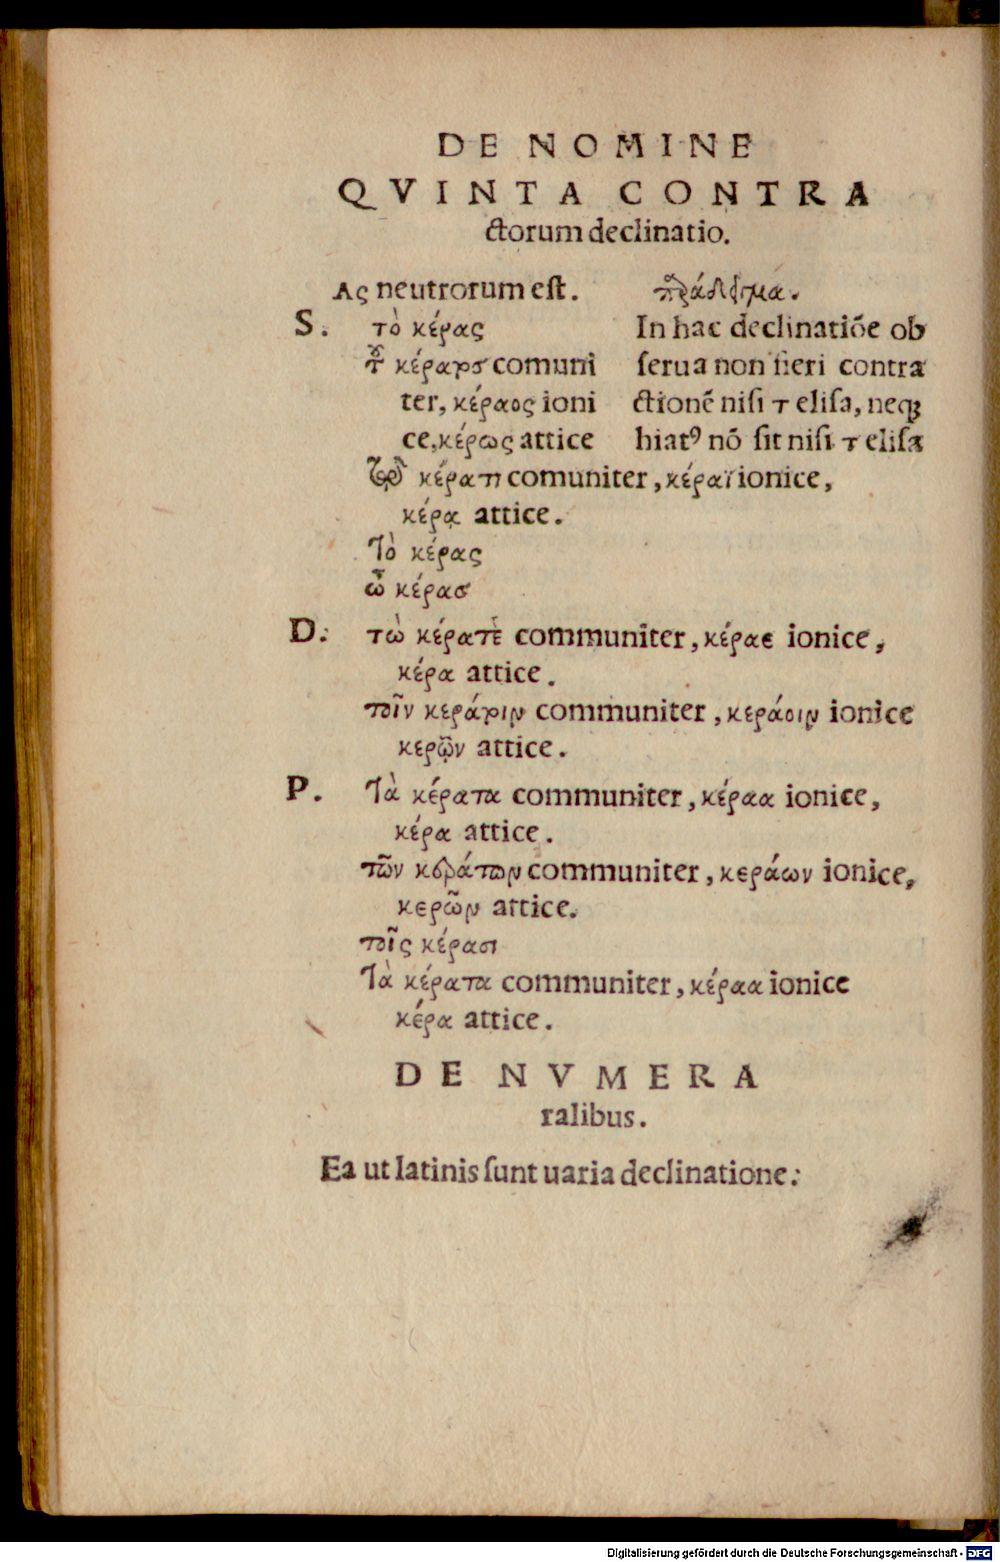 DE NOMINE
QVINTA CONTRA
ctorum declinatio.
Ας neutrorum est. παράδειγμα.
S. τὸ κέρας
τȣ͂ κέρατος comuni
ter, κέραος ioni
ce, κέρως attice
In hac declinatiōe ob
serua non fieri contra
ctionē nisi τ elisa, neqꝫ
hiatꝰ nō sit nisi τ elisa
τῷ κέρατι comuniter, κέραϊ ionice,
κέρᾳ attice.
Τὸ κέρας
ὦ κέρας
D. τὼ κέρατε communiter, κέραε ionice,
κέρα attice.
τοῖν κεράτοιν communiter, κεράοιν ionice
κερῷν attice.
P. Τὰ κέρατα communiter, κέραα ionice,
κέρα attice.
τῶν κεράτων communiter, κεράων ionice,
κερῶν attice.
τοῖς κέρασι
Τὰ κέρατα communiter, κέραα ionice
κέρα attice.
DE NVMERA
ralibus.
Ea ut latinis sunt uaria declinatione:
Digitalisierung gefördert durch die Deutsche Forschungsgemeinschaft - DFG